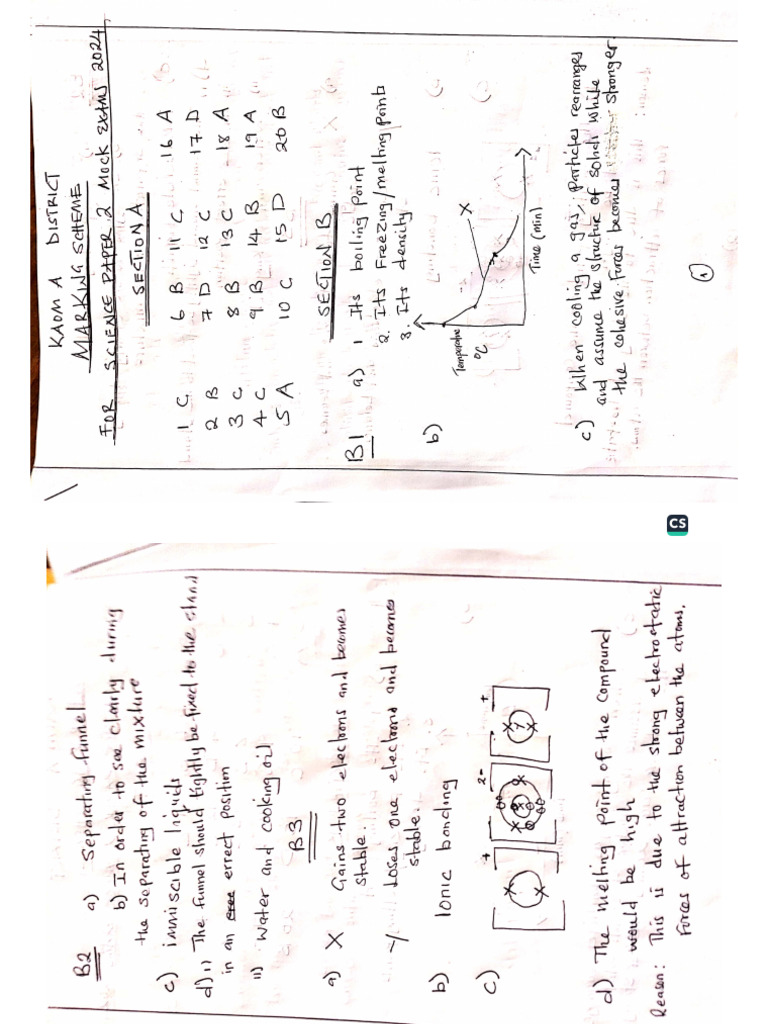 KAOMA DISTRICT
MARKING SCHEME
FOR SCIENCE PAPER 2 MOCK EXAMS 2024
SECTION A
1 C 6 B 11 C 16 A
2 B 7 D 12 C 17 D
3 C 8 B 13 C 18 A
4 C 9 B 14 B 19 A
5 A 10 C 15 D 20 B
SECTION B
B1 a) 1 Its boiling point
2. Its Freezing/melting points
3. Its density
b)
Temperature
°C
X
Time (min)
c) When cooling a gas, particles rearranges
and assume the structure of solids while
the cohesive forces becomes stronger.
1
CS
B2 a) Separating funnel
b) In order to see clearly during
the separating of the mixture
c) immiscible liquids
d) i) The funnel should tightly be fixed to the stand
in an errect position
ii) Water and cooking oil
B3
a) X Gains two electrons and becomes
stable.
Y Loses one electrons and becomes
stable.
b) Ionic bonding
c)
+ 2- +
Y
d) The melting point of the compound
would be high
Reason: This is due to the strong electrostatic
forces of attraction between the atoms.